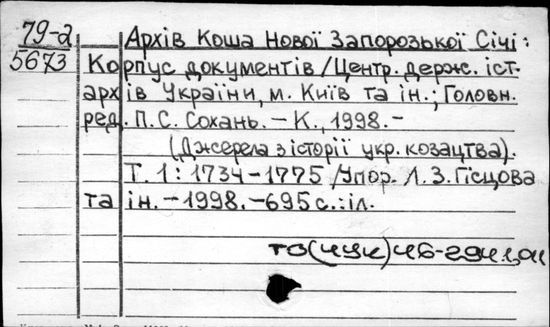 79-2
5673
Архів Коша Нової Запорозької Січі:
Корпус документів/Центр. держ. іст.
архів України, м. Київ та ін.; Головн.
ред. П.С. Сохань. – К., 1998. –
(Джерела з історії укр. козацтва).
Т. 1: 1734-1775 /Упор. Л.З. Гісцова
та ін. – 1998. – 695 с.: іл.